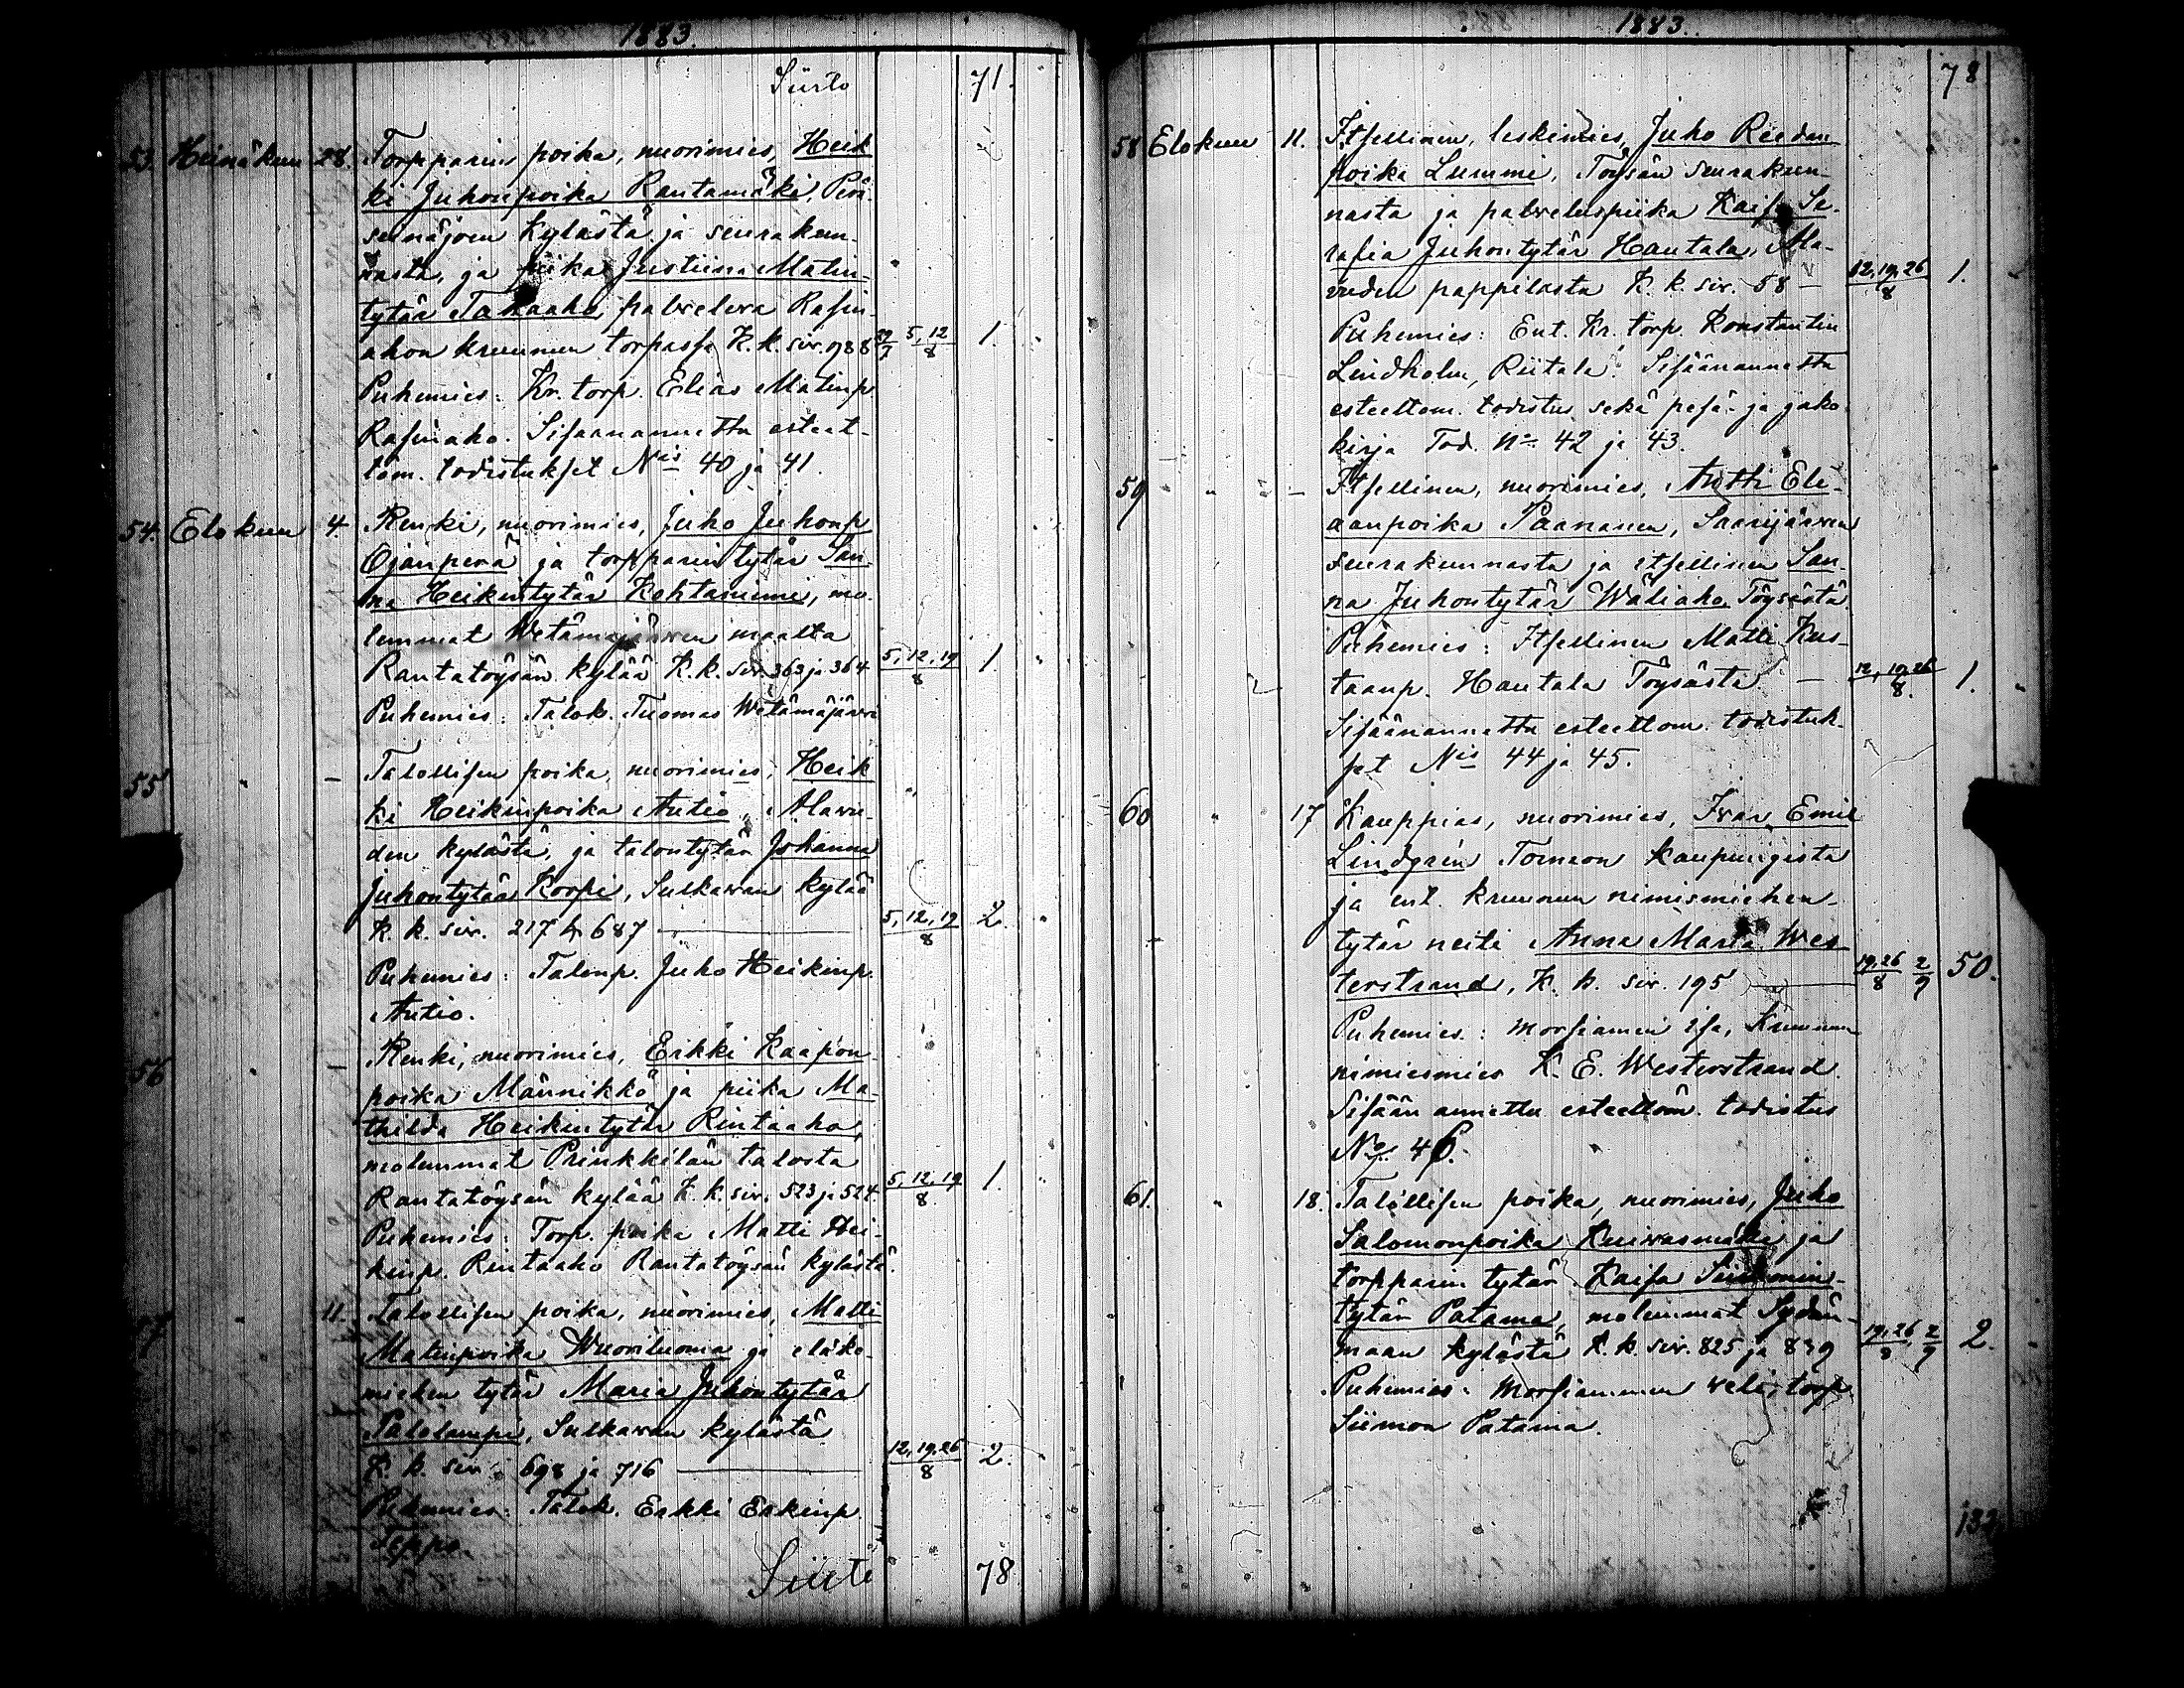 1883.
Siirto 71.
53. Heinäkuu 28. Torpparin poika, nuorimies, Heik
ki Juhonpoika Rantamäki, Perä
seinäjoen kylästä ja seurakun-
nasta, ja piika Justiina Matin-
tytär Takaaho, palveleva Rasin-
ahon kruunun torpassa K. k. siv. 988 29/7 5, 12/8 1.
Puhemies: Kr. torp. Elias Matinp.
Rasinaho. Sisäänannettu esteet-
töm. todistukset Nis 40 ja 41.
54. Elokuu 4. Renki, nuorimies, Juho Juhonp
Ojanperä ja torpparin tytär San-
na Heikintytär Kohtaniemi, mo-
lemmat Wetämäjärven maalta
Rantatöysän kylää K. k. siv. 363 ja 364 5, 12, 19/8 1.
Puhemies: Talok. Tuomas Wetämäjärvi
55 " - Talollisen poika, nuorimies, Heik
ki Heikinpoika Autio, Alavu-
den kylästä, ja talontytär Johanna
Juhontytär Korpi, Sulkavan kylää
K. k. siv. 217 & 687 5, 12, 19/8 2.
Puhemies: Talonp. Juho Heikinp.
Autio.
56 " - Renki, nuorimies, Erkki Kaapon-
poika Männikkö ja piika Ma-
thilda Heikintytär Rintaaho,
molemmat Prinkkilän talosta
Rantatöysän kylää K. k. siv. 523 ja 524. 5, 12, 19/8. 1.
Puhemies: Torp. poika Matti Hei-
kinp. Rintaaho Rantatöysän kylästä.
57 " 11. Talollisen poika, nuorimies, Matti
Matinpoika Wuoriluoma ja eläke-
miehen tytär Maria Juhontytär
Talolampi, Sulkavan kylästä
K. k. siv. 698 ja 716 12, 19, 26/8 2.
Puhemies: Talok. Erkki Erkinp.
Seppo.
Siirto 78
1883.
78
58 Elokuu 11. Itsellinen, leskimies, Juho Riedon
poika Lummi, Töysän seurakun-
nasta ja palveluspiika Kaisa Se-
rafia Juhontytär Hautala, Ala-
vuden pappilasta K. k. siv. 58 12, 19, 26/8 1.
Puhemies: Ent. Kr. torp. Konstantin
Lindholm, Riitala. Sisäänannettu
esteettöm. todistus sekä pesä- ja jako-
kirja Tod. No. 42 ja 43.
59 " - Itsellinen, nuorimies, Antti Eli-
aanpoika Paananen, Saarijärven
seurakunnasta ja itsellinen San-
na Juhontytär Wäliaho Töysästä.
Puhemies: Itsellinen Matti Kus-
taanp. Hautala Töysästä. 12, 19, 26/8. 1.
Sisäänannettu esteettöm. todistuk-
set Nis 44 ja 45.
60 " 17 Kauppias, nuorimies, Ivar Emil
Lindgrén Tornion kaupungista
ja ent. kruunun nimismiehen
tytär neiti Anna Maria Wes-
terstrand, K. k. siv. 195 19, 26/8 2/9 50.
Puhemies: morsiamen isä, Kruunun
nimismies K. E. Westerstrand.
Sisään annettu esteettöm. todistus
No. 46.
61. " 18. Talollisen poika, nuorimies, Juho
Salomonpoika Kuivasmäki ja
torpparin tytär Kaisa Siimonin-
tytär Patama, molemmat Sydän-
maan kylästä K. k. siv. 825 ja 839 19, 26/8, 2/9 2.
Puhemies: morsiammen veli, torp.
Siimon Patama.
132.